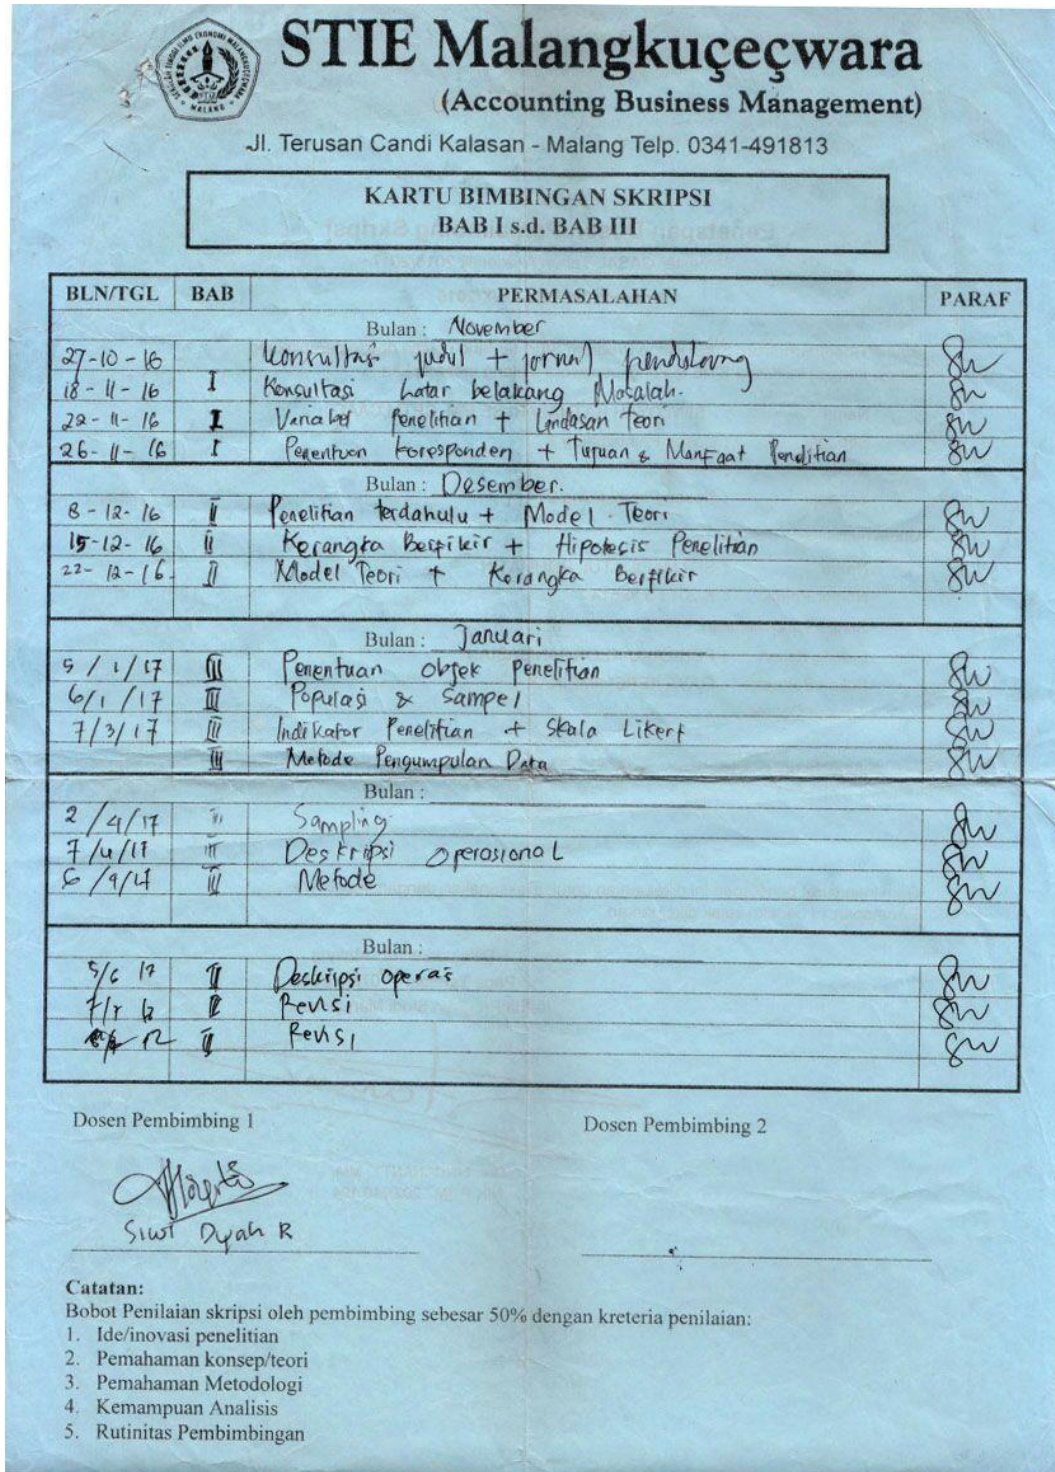 STIE Malangkuçeçwara
(Accounting Business Management)
Jl. Terusan Candi Kalasan - Malang Telp. 0341-491813
KARTU BIMBINGAN SKRIPSI
BAB I s.d. BAB III
BLN/TGL BAB PERMASALAHAN PARAF
Bulan : November
27-10-16 Konsultasi judul + jornal pendukung
18-11-16 I Konsultasi Latar belakang Masalah.
22-11-16 I Variabel Penelitian + Landasan Teori
26-11-16 I Penentuan Koresponden + Tujuan & Manfaat Penelitian
Bulan : Desember.
8-12-16 II Penelitian terdahulu + Model Teori
15-12-16 II Kerangka Berfikir + Hipotesis Penelitian
22-12-16 II Model Teori + Kerangka Berfikir
Bulan : Januari
5/1/17 III Penentuan Objek Penelitian
6/1/17 III Populasi & Sampel
7/3/17 III Indikator Penelitian + Skala Likert
III Metode Pengumpulan Data
Bulan :
2/4/17 III Sampling
7/4/17 III Deskripsi Operasional
III Metode
Bulan :
5/6 17 Deskripsi operas
Revisi
Revisi
Dosen Pembimbing 1 Dosen Pembimbing 2
Siwi Dyah R
Catatan:
Bobot Penilaian skripsi oleh pembimbing sebesar 50% dengan kreteria penilaian:
1. Ide/inovasi penelitian
2. Pemahaman konsep/teori
3. Pemahaman Metodologi
4. Kemampuan Analisis
5. Rutinitas Pembimbingan